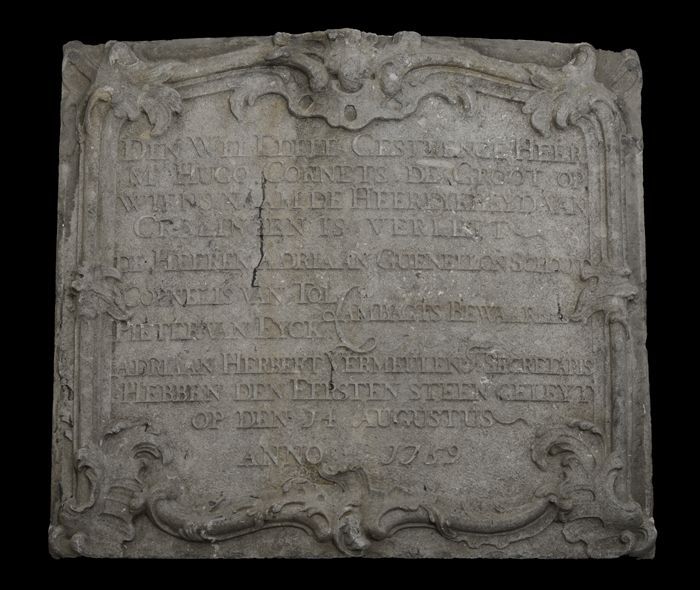 DEN WEL EDELE GESTRENGE HEER
Mr HUGO CORNETS DE GROOT OP
WIENS NAAM DE HEERLYKHYD VAN
CRALINGEN IS VERLEYT
DE HEEREN ADRIAAN GUENELLON SCHOUT
CORNELIS VAN TOL
PIETER VAN EYCK
AMBAGTS BEWAARDERS
ADRIAAN HERBERT VERMEULEN SECRETARIS
HEBBEN DEN EERSTEN STEEN GELEYT
OP DEN 14 AUGUSTUS
ANNO 1759